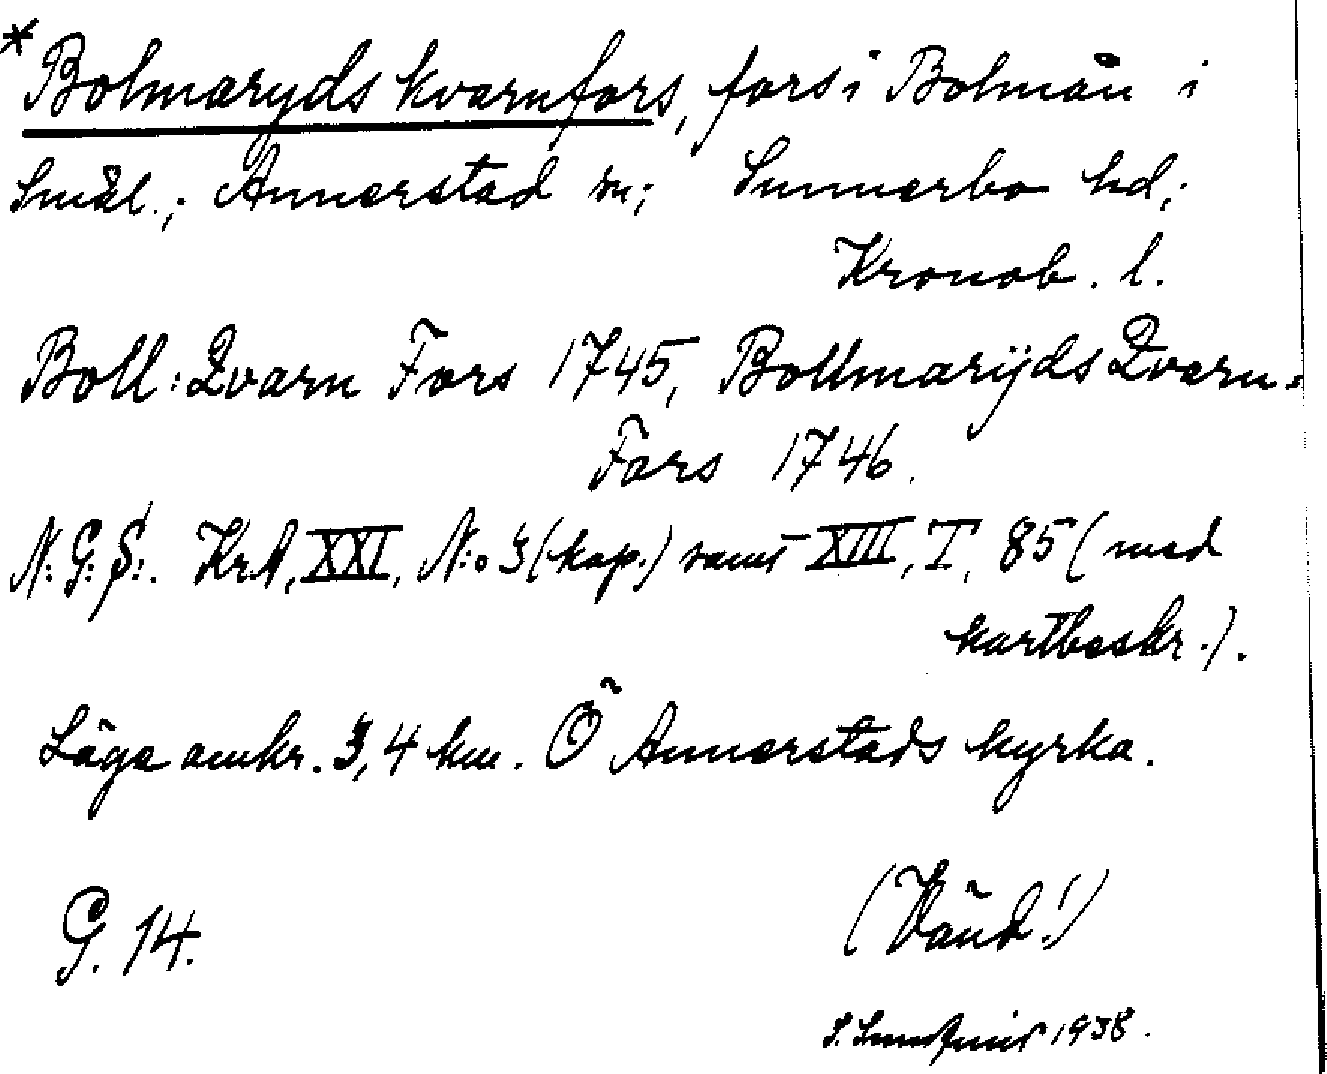 * Bolmaryds kvarnfors, fors i Bolmån i
Smål.; Annerstad sn; Sunnerbo hd;
Kronob. l.
Boll: Qvarn Fors 1745, Bollmarÿds Qvarn-
Fors 1746.
N: G: S:. KrA, XXI, N:o 3 (kop.) samt XIII, I, 85 (med
kartbeskr.).
Läge omkr. 3,4 km. Ö Annerstads kyrka.
G. 14.
(Vänd!)
S. 1938.